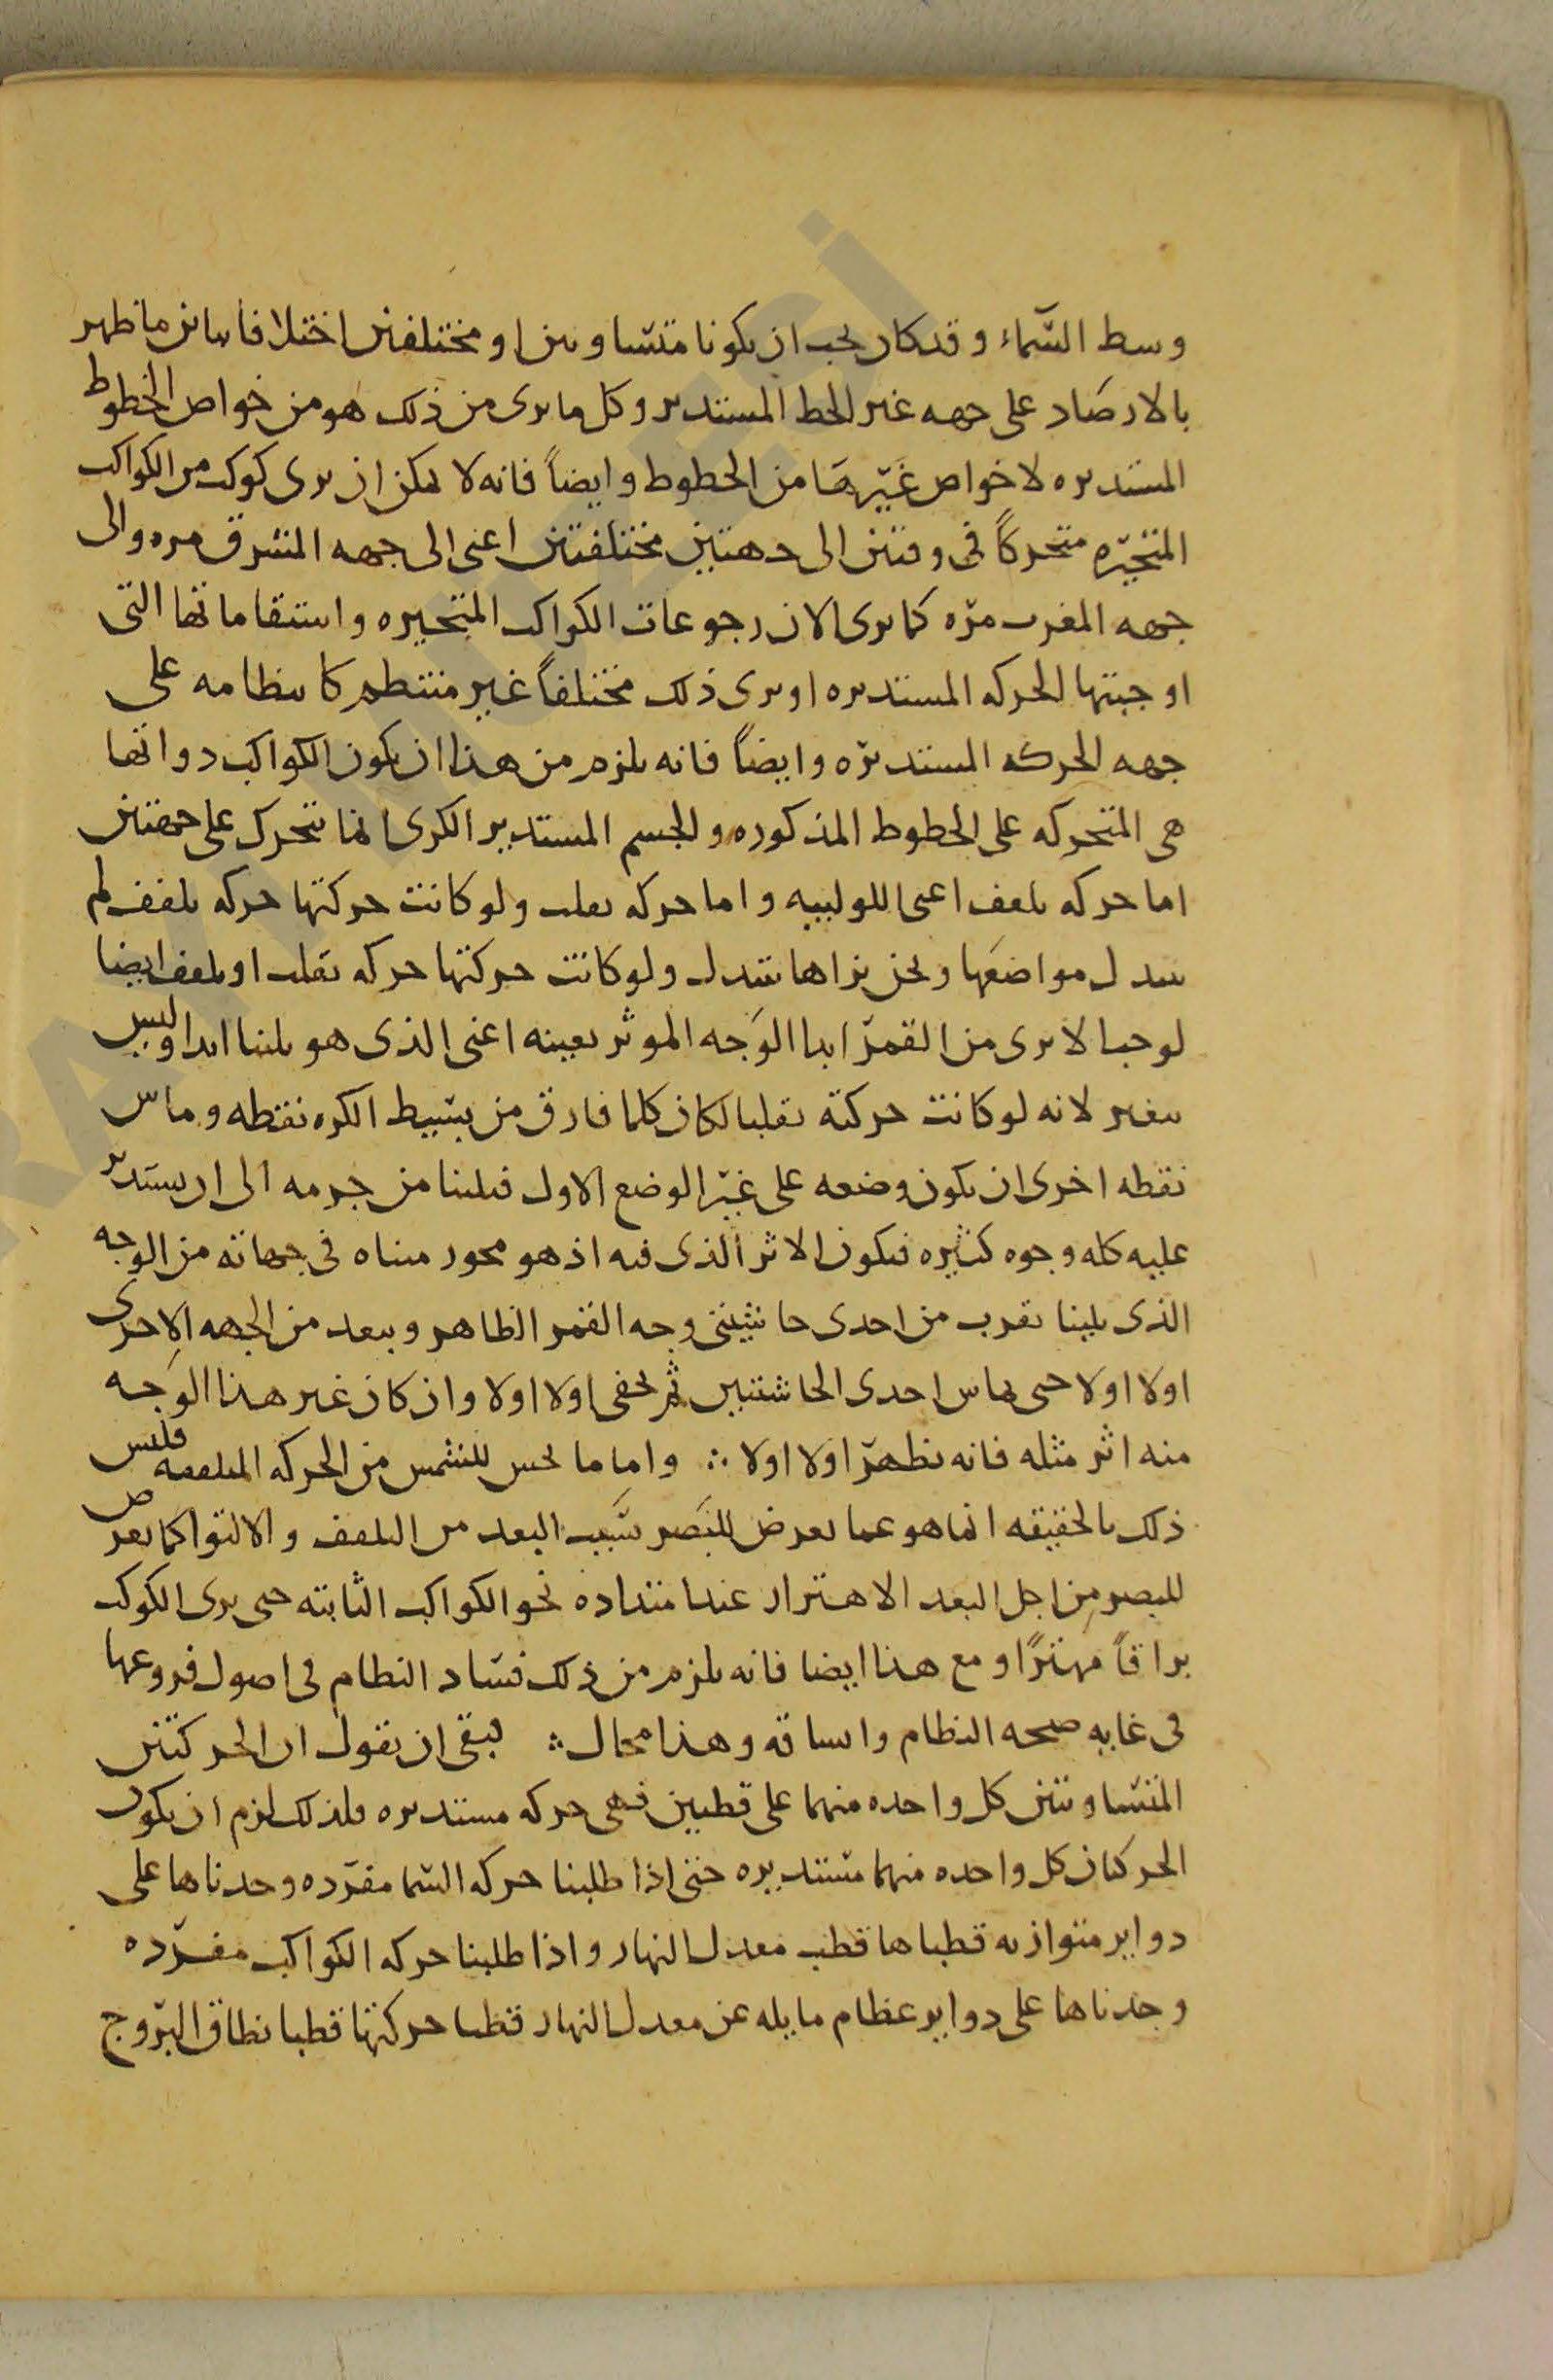 وسط السماء وقد كان يجب ان يكونا متساويين او مختلفين اختلافا يباين ما ظهر
بالارصاد على جهه غير الخط المستدير وكل ما يرى من ذلك هو من خواص الخطوط
المستديره لا خواص غيرها من الخطوط وايضاً فانه لا يمكن ان يرى كوكب من الكواكب
المتحيّره متحركاً في وقتين الى جهتين مختلفتين اعنى الى جهه المشرق مره والى
جهه المغرب مرّه كما يرى الان رجوعات الكواكب المتحيره واستقاماتها التى
اوجبتها الحركه المستديره او يرى ذلك مختلفاً غير منتظم كانتظامه على
جهه الحركه المستديره وايضاً فانه يلزم من هذا ان يكون الكواكب ذواتها
هى المتحركه على الخطوط المذكوره والجسم المستدير الكرى انما يتحرك على جهتين
اما حركه تلفف اعنى اللولبيه واما حركه تقلب ولو كانت حركتها حركه تلفف لم
يتبدل مواضعها ونحن نراها تتبدل ولو كانت حركتها حركه تقلب او تلفف ايضا
لوجب الا يرى من القمر ابدا الوجه الموثر بعينه اعنى الذى هو يلينا ابدا وليس
يتغير لانه لو كانت حركته تقلبا لكان كلما فارق من بسيط الكره نقطه وماس
نقطه اخرى ان يكون وضعه على غير الوضع الاول فيلينا من جرمه الى ان يستدير
عليه كله وجوه كثيره فيكون الاثر الذى فيه اذ هو محور متناه في جهاته من الوجه
الذى يلينا يقرب من احدى حاشيتى وجه القمر الظاهر ويبعد من الجهه الاخرى
اولا اولا حتى يماس احدى الحاشتيين ثم يخفى اولا اولا وان كان غير هذا الوجه
منه اثر مثله فانه يظهر اولا اولا ∴ واما ما يحس للشمس من الحركه المتلففه فليس
ذلك بالحقيقه انما هو عما يعرض للبصر بسبب البعد من التلفف والالتوا كما يعرض
للبصر من اجل البعد الاهتزاز عند امتداده نحو الكواكب الثابته حتى يرى الكوكب
براقاً مهتزًا ومع هذا ايضا فانه يلزم من ذلك فساد النظام في اصول فروعها
في غايه صحه النظام واتساقه وهذا محال ∴ فبقى ان نقول ان الحركتين
المتساويتين كل واحده منهما على قطبين فهى حركه مستديره فلذلك لزم ان يكون
الحركتان كل واحده منهما مستديره حتى اذا طلبنا حركه السما مفرده وجدناها على
دواير متوازيه قطباها قطب معدل النهار واذا طلبنا حركه الكواكب مفرده
وجدناها على دواير عظام مايله عن معدل النهار قطبا حركتها قطبا نطاق البروج